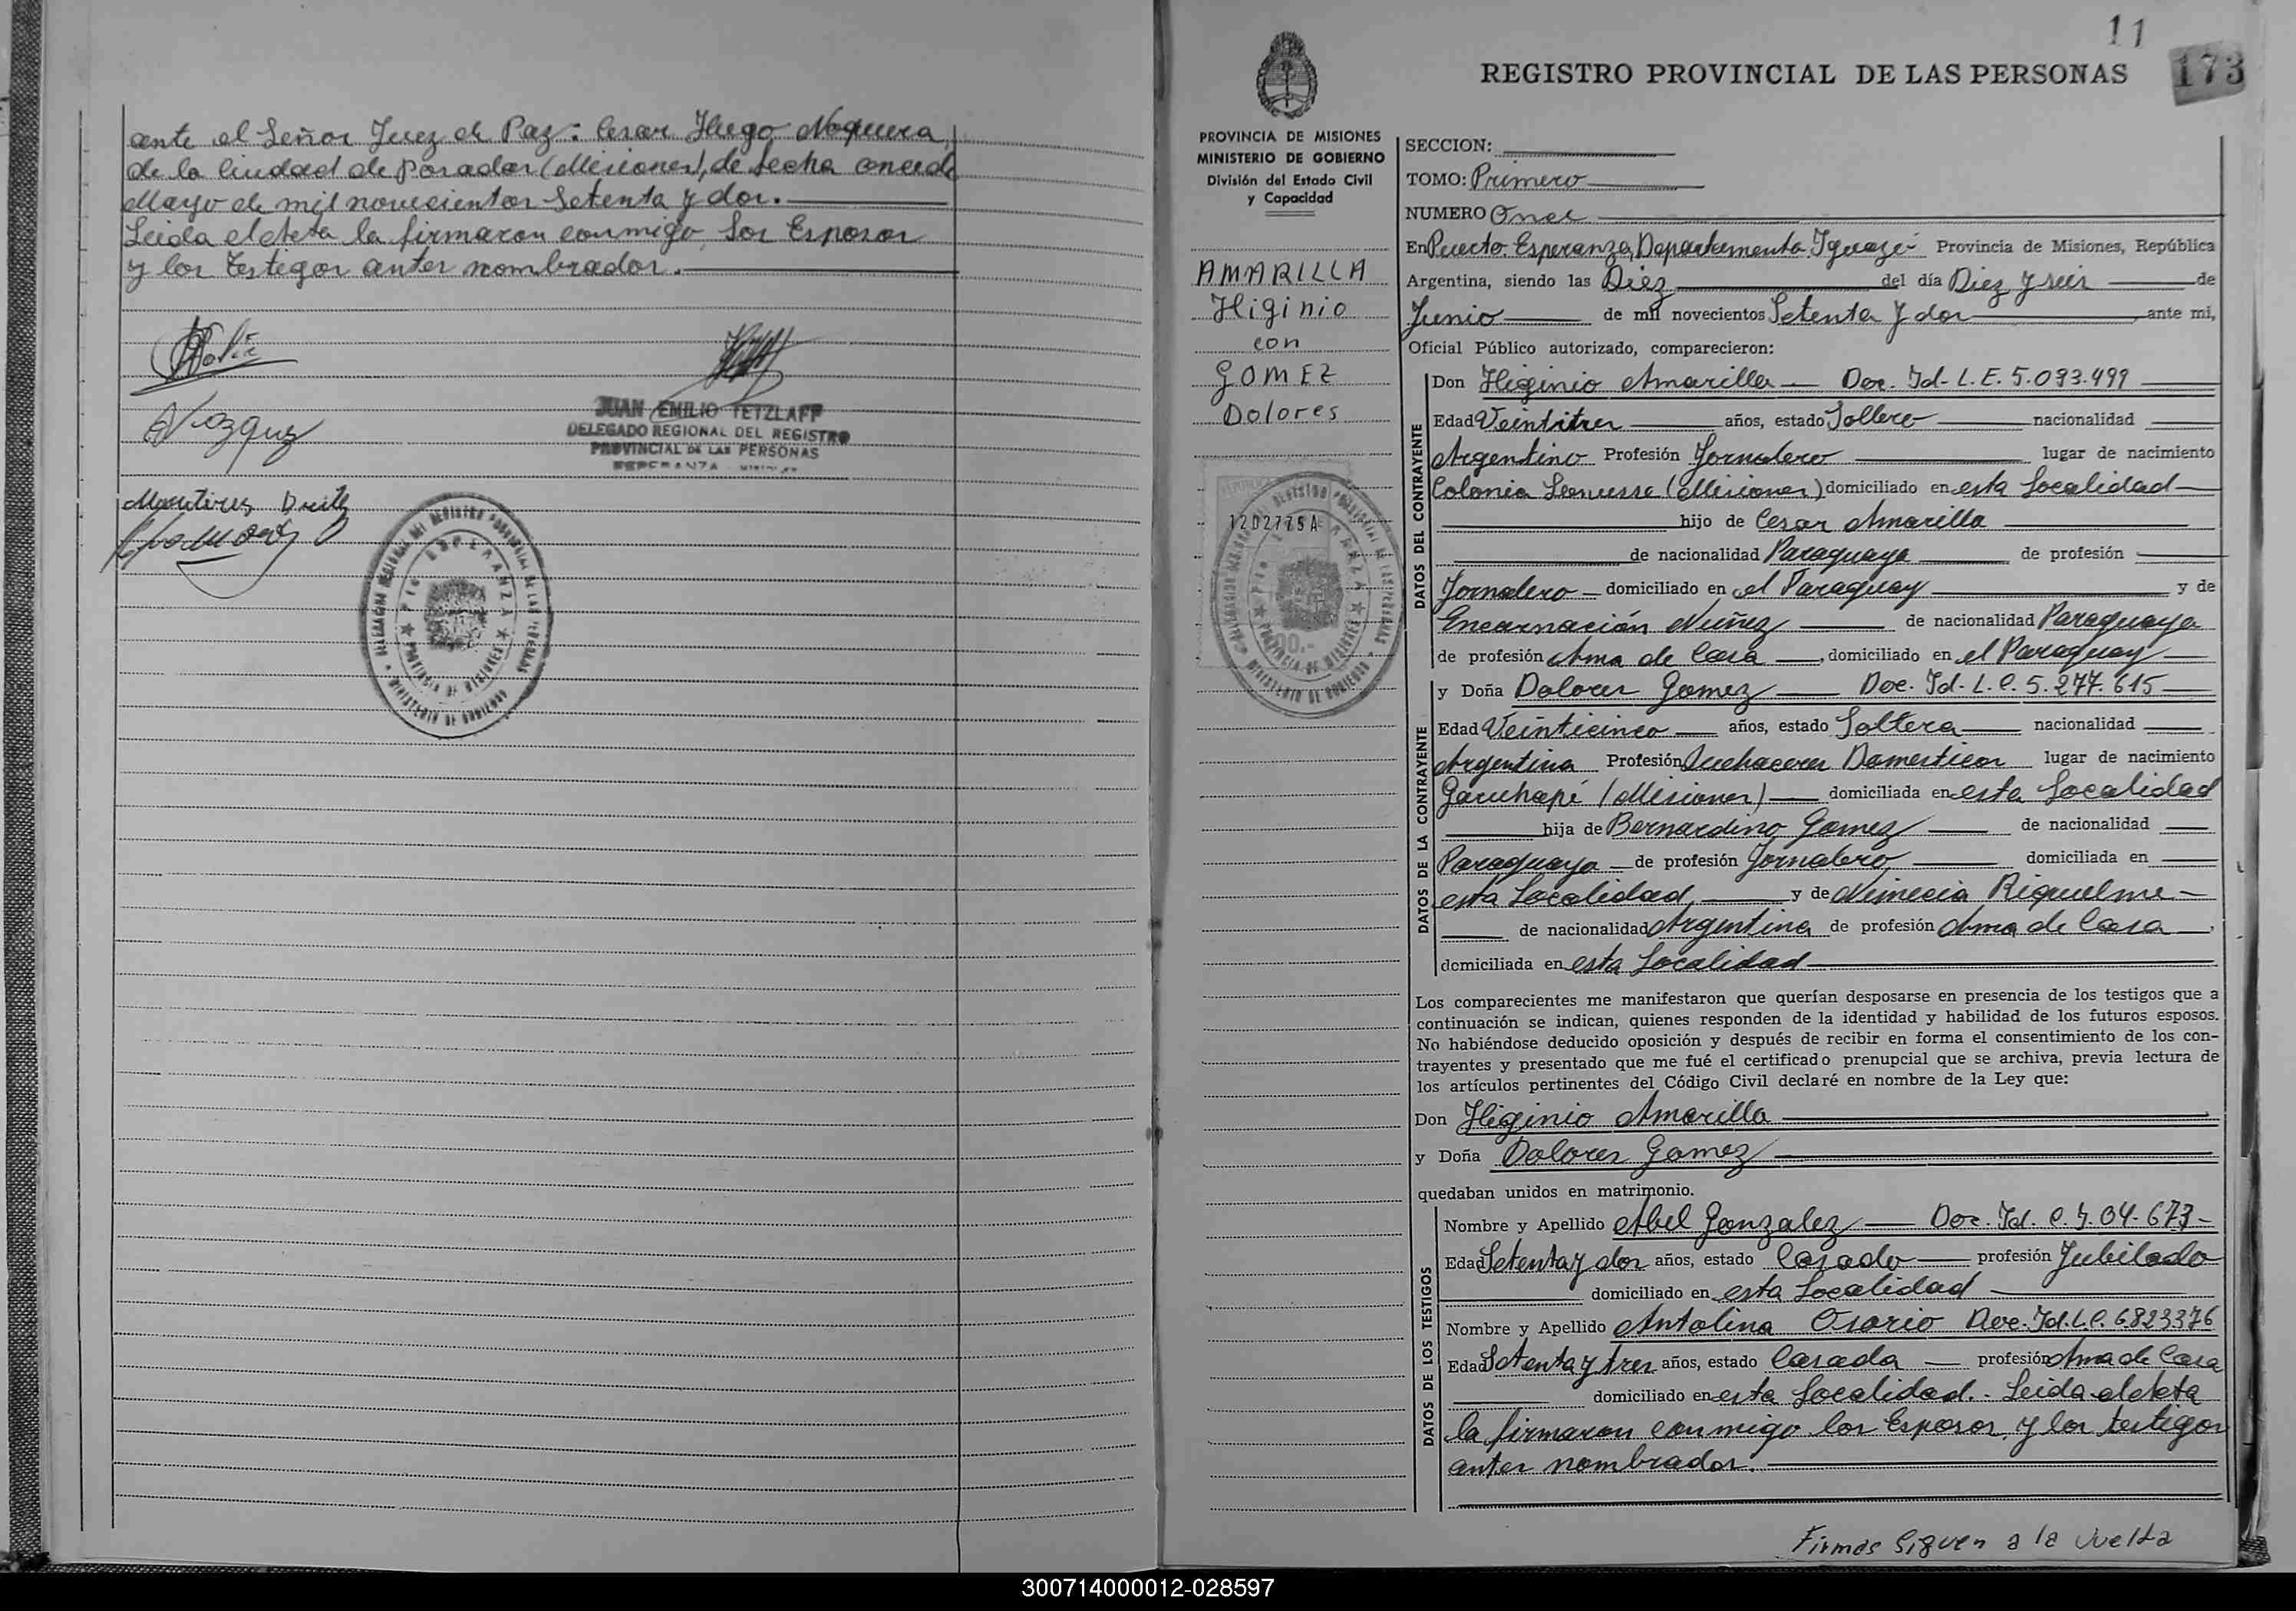 ante el Señor Juez de Paz: Cesar Hugo Noguera,
de la Ciudad de Posadas (Misiones), de fecha once de
Mayo de mil novecientos Setenta y dos.
Leida el Acta la firmaron conmigo, los Esposos
y los testigos antes nombrados.
Vazquez
JUAN EMILIO TETZLAFF
DELEGADO REGIONAL DEL REGISTRO
PROVINCIAL DE LAS PERSONAS
ESPERANZA - MISIONES
11
173
REGISTRO PROVINCIAL DE LAS PERSONAS
PROVINCIA DE MISIONES
MINISTERIO DE GOBIERNO
División del Estado Civil
y Capacidad
AMARILLA
Higinio
con
GOMEZ
Dolores
1202775A
SECCION:
TOMO: Primero
NUMERO Once
En Puerto Esperanza, Departamento Iguazú Provincia de Misiones, República
Argentina, siendo las Diez del día Diez y seis de
Junio de mil novecientos Setenta y dos ante mi,
Oficial Público autorizado, comparecieron:
DATOS DEL CONTRAYENTE
Don Higinio Amarilla Doc. Id- L.E. 5.093.499
Edad Veintitres años, estado Soltero nacionalidad
Argentino Profesión Jornalero lugar de nacimiento
Colonia (Misiones) domiciliado en esta Localidad
hijo de Cesar Amarilla
de nacionalidad Paraguaya de profesión
Jornalero domiciliado en el Paraguay y de
Encarnación Nuñez de nacionalidad Paraguaya
de profesión Ama de Casa, domiciliado en el Paraguay
DATOS DE LA CONTRAYENTE
y Doña Dolores Gomez Doc. Id- L.C. 5.277.615
Edad Veinticinco años, estado Soltera nacionalidad
Argentina Profesión Quehaceres Domesticos lugar de nacimiento
Garuhapé (Misiones) domiciliada en esta Localidad
hija de Bernardino Gomez de nacionalidad
Paraguaya de profesión Jornalero domiciliada en
esta Localidad, y de Nimecia Riquelme
de nacionalidad Argentina de profesión Ama de Casa,
domiciliada en esta Localidad
Los comparecientes me manifestaron que querían desposarse en presencia de los testigos que a
continuación se indican, quienes responden de la identidad y habilidad de los futuros esposos.
No habiéndose deducido oposición y después de recibir en forma el consentimiento de los con-
trayentes y presentado que me fué el certificado prenupcial que se archiva, previa lectura de
los artículos pertinentes del Código Civil declaré en nombre de la Ley que:
Don Higinio Amarilla
y Doña Dolores Gomez
quedaban unidos en matrimonio.
DATOS DE LOS TESTIGOS
Nombre y Apellido Abel Gonzalez Doc. Id.
Edad Setenta y dos años, estado Casado profesión Jubilado
domiciliado en esta Localidad
Nombre y Apellido Antolina Osorio Doc. Id. L.C. 6.823.376
Edad Setenta y tres años, estado Casada profesión Ama de Casa
domiciliado en esta Localidad.- Leida el Acta
la firmaron conmigo los Esposos, y los testigos
antes nombrados.
Firmas Siguen a la vuelta
300714000012-028597